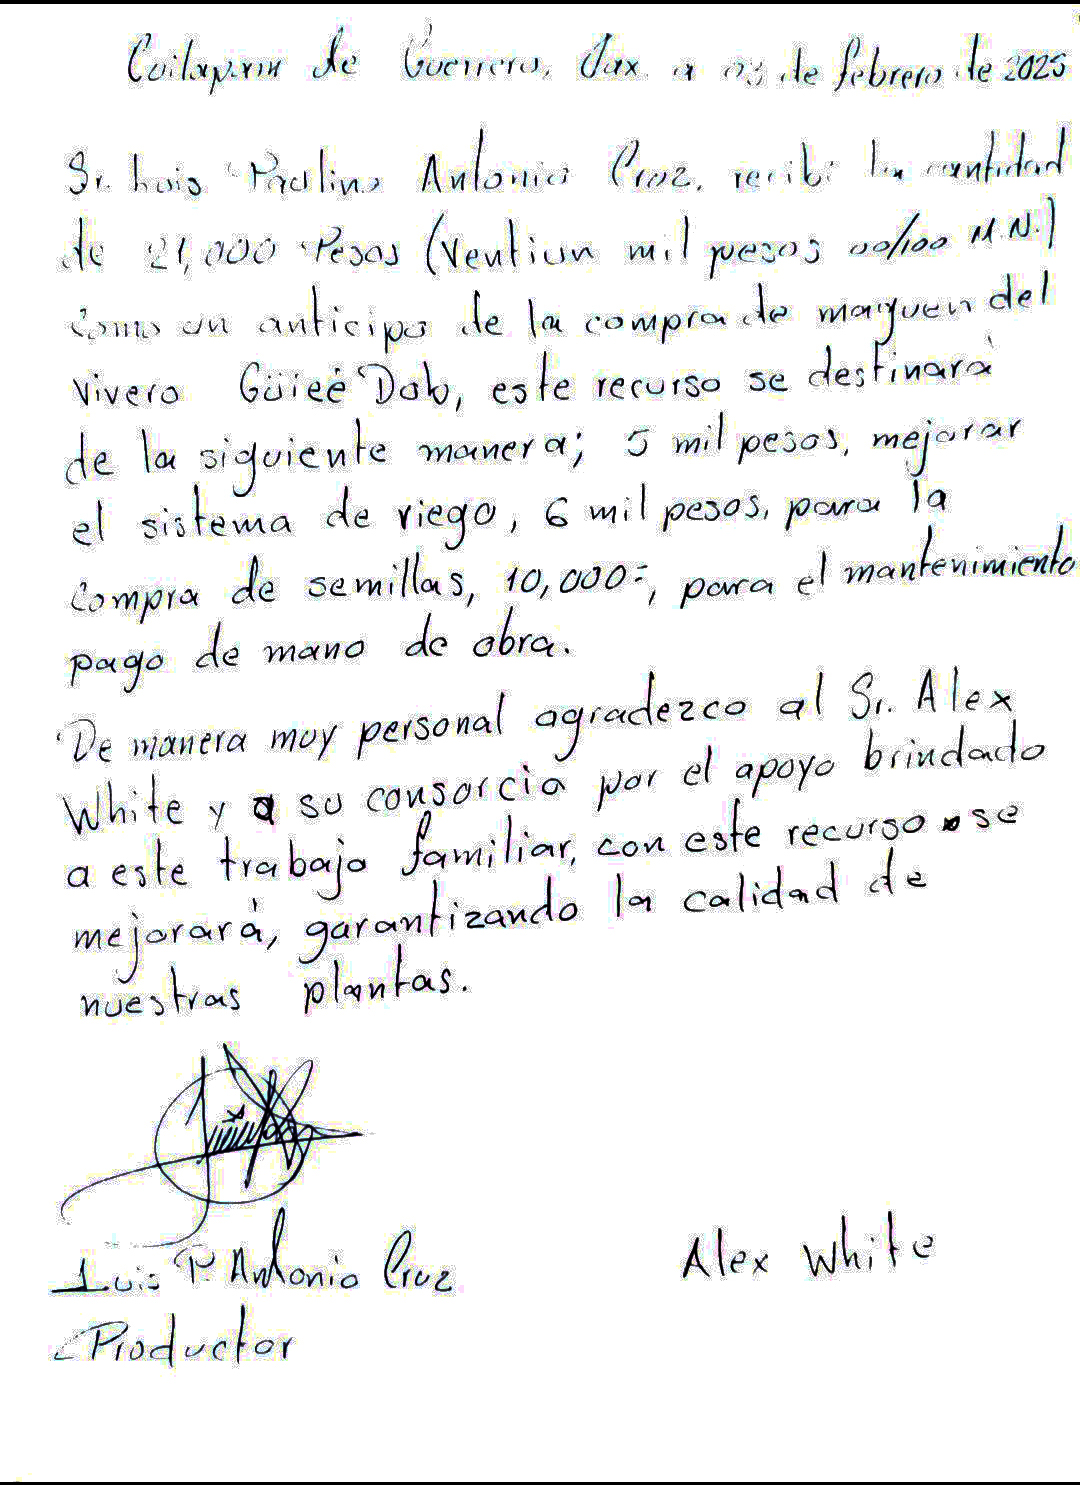 Cuilapam de Guerrero, Oax. a 03 de febrero de 2025
Sr. Luis Paulino Antonio Cruz, recibí la cantidad
de 21,000 Pesos (Ventiun mil pesos 00/100 M.N.)
como un anticipo de la compra de maguey del
vivero Güieé Dob, este recurso se destinará
de la siguiente manera; 5 mil pesos, mejorar
el sistema de riego, 6 mil pesos, para la
compra de semillas, 10,000=, para el mantenimiento
pago de mano de obra.
De manera muy personal agradezco al Sr. Alex
White y a su consorcia por el apoyo brindado
a este trabajo familiar, con este recurso se
mejorará, garantizando la calidad de
nuestras plantas.
Luis P. Antonio Cruz
Alex White
Productor